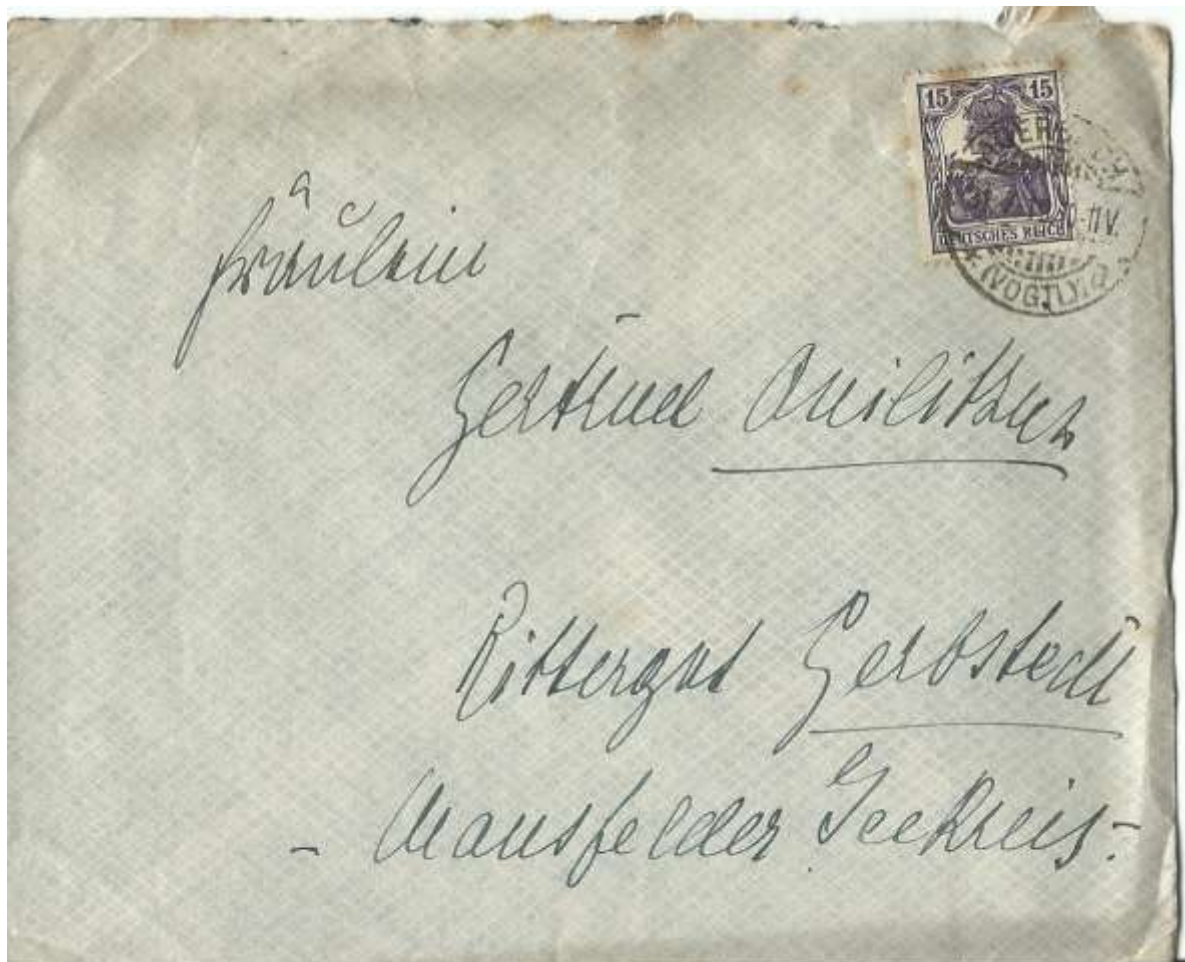 15 15
DEUTSCHES REICH
(VOGTL)
Fräulein
Gertrud
Rittergut Gerbstedt
- Mansfelder Seekreis -